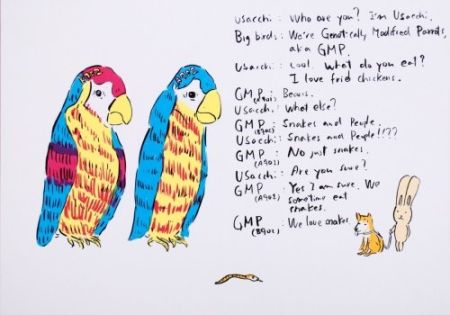 Usacchi : Who are you? I'm Usacchi.
Big birds : We're Genetically Modified Parrots,
aka GMP.
Usacchi : Cool. What do you eat?
I love frid chickens.
GMP : Beans.
(A902)
Usacchi : What else?
GMP : Snakes and People.
(B902)
Usacchi : Snakes and People!!??
GMP : No just snakes.
(A902)
Usacchi : Are you sure?
GMP : Yes I am sure. We
(A902)
sometime eat
snakes.
GMP : We love snakes.
(B902)